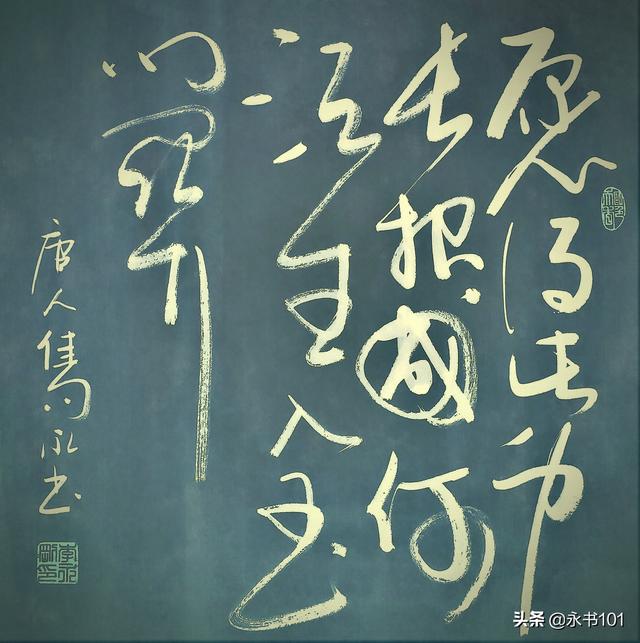 愿得此身
长报國何
须生入玉
门關
唐人佳句永书
头条 @永书101